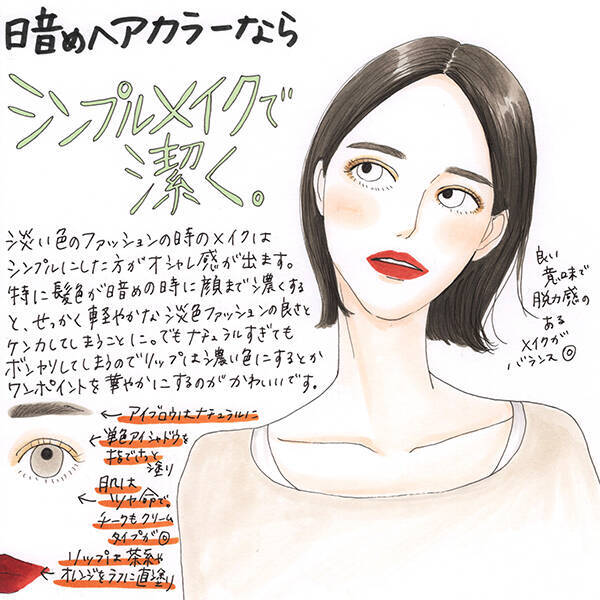 暗めヘアカラーなら
シンプルメイクで
潔く。
淡い色のファッションの時のメイクは
シンプルにした方がオシャレ感が出ます。
特に髪色が暗めの時に顔まで濃くする
と、せっかく軽やかな淡色ファッションの良さと
ケンカしてしまうことに。でもナチュラルすぎても
ボンヤリしてしまうのでリップは濃い色にするとか
ワンポイントを華やかにするのがかわいいです。
良い
意味で
脱力感の
ある
メイクが
バランス◎
←アイブロウはナチュラルに
←単色アイシャドウを
指でさっと
塗り
肌は
←ツヤ命で。
チークもクリーム
タイプが◎
リップは茶系や
←オレンジをラフに直塗り